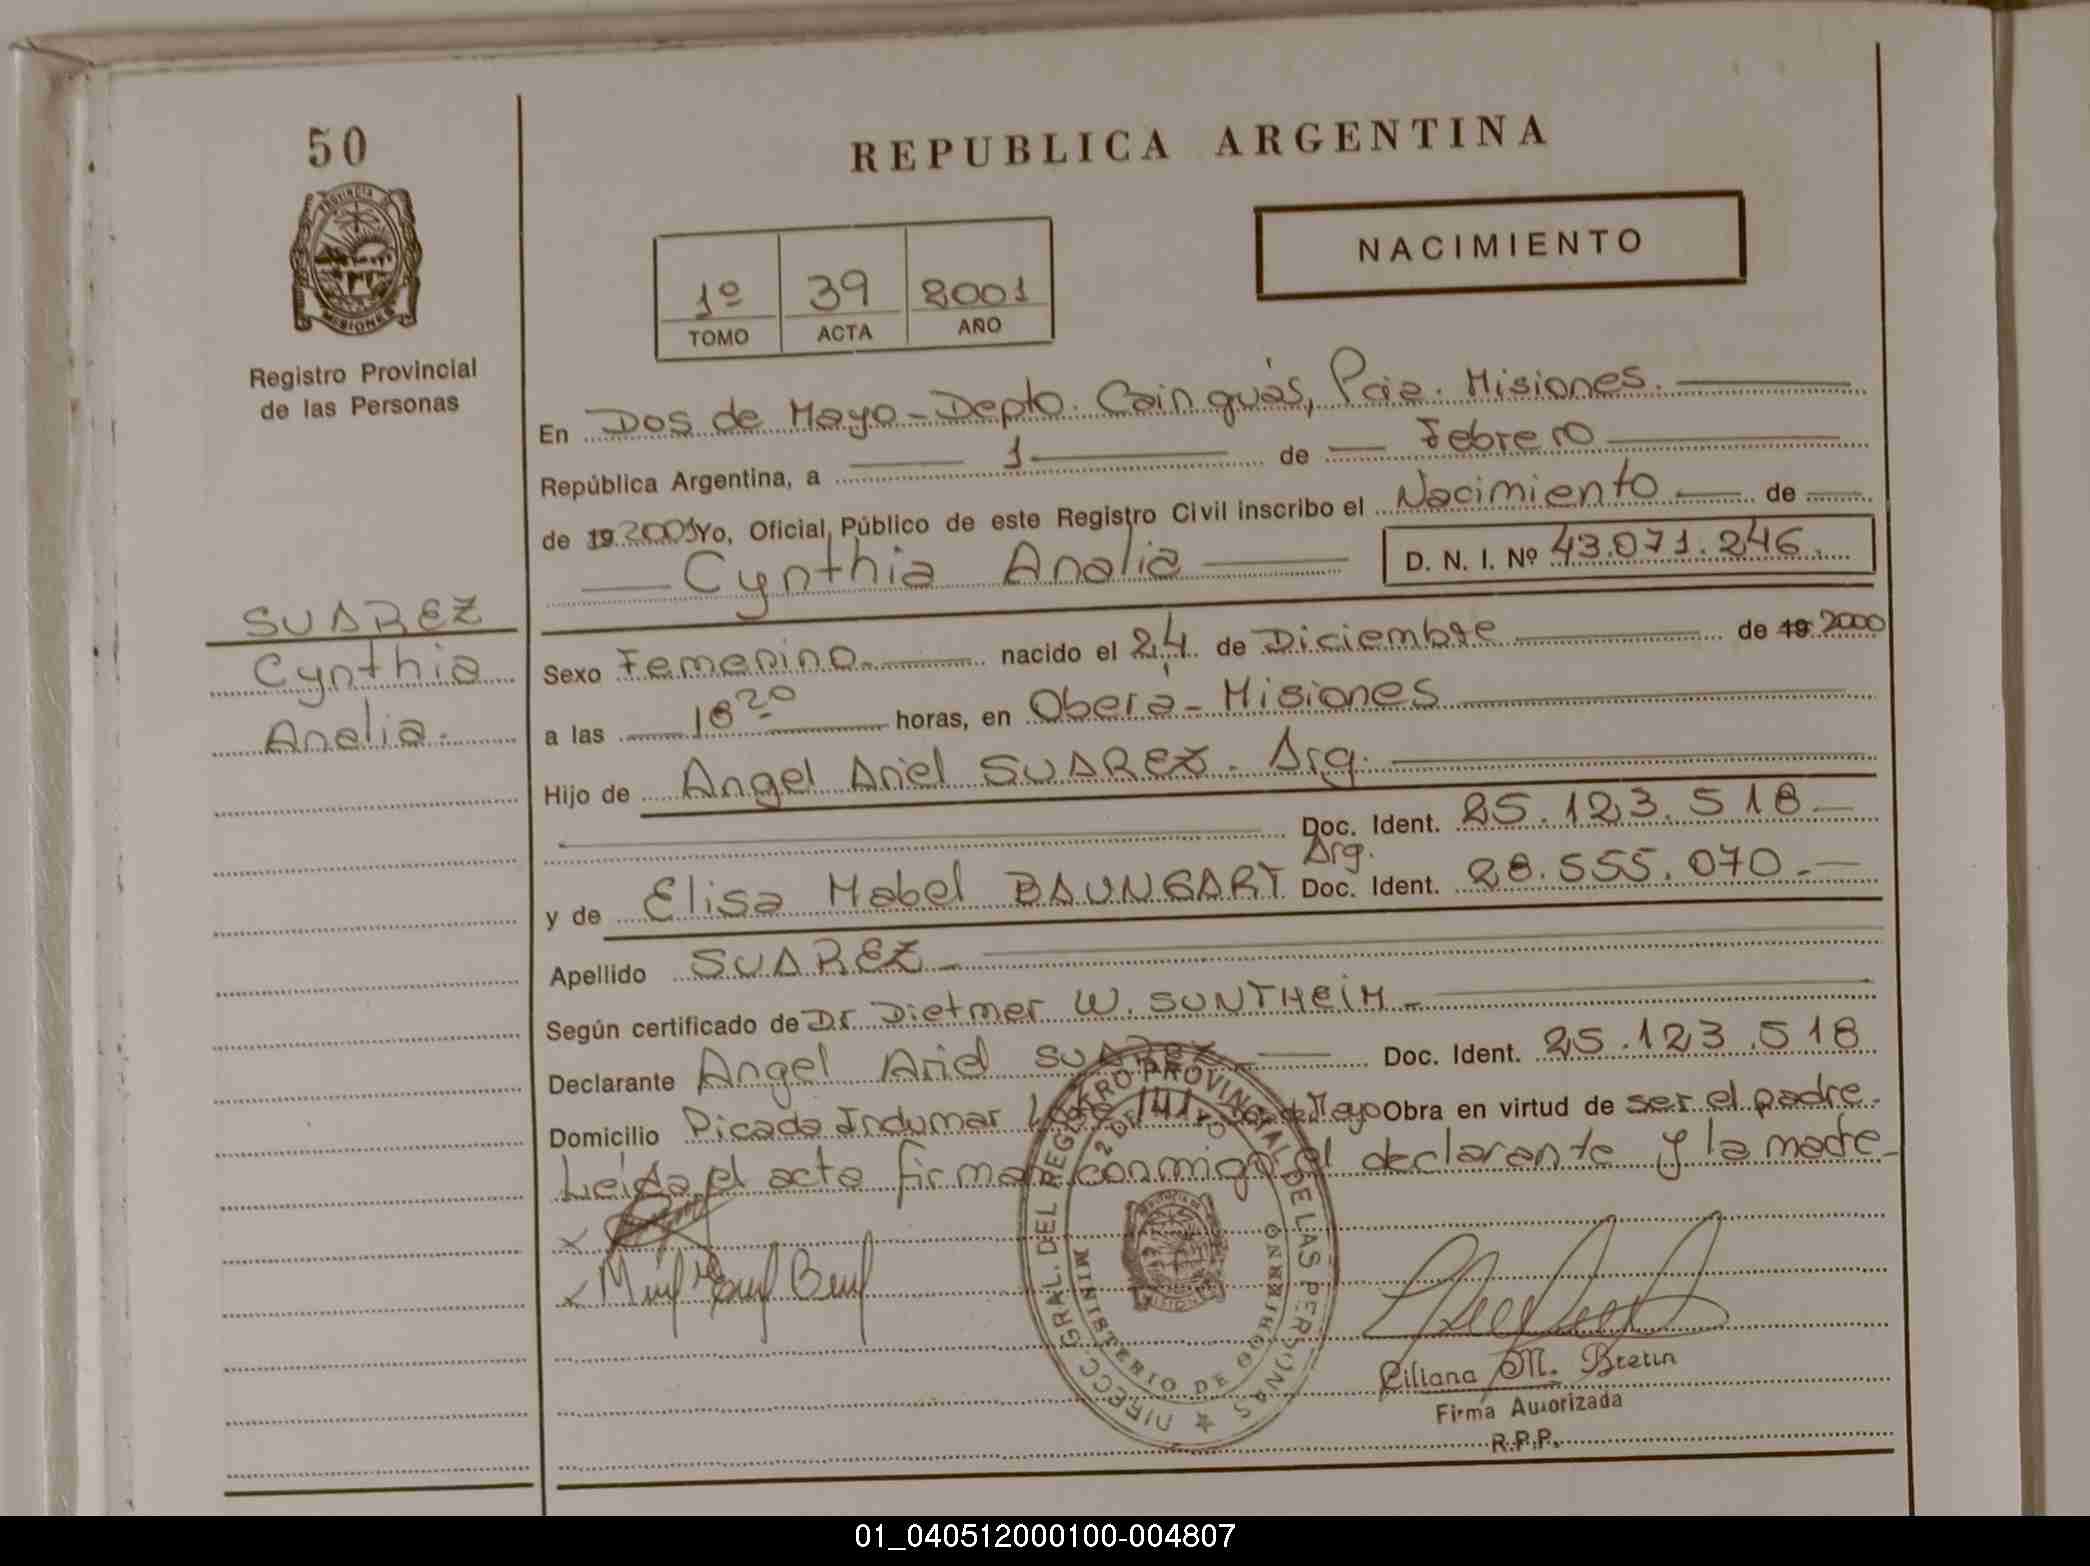 50
PROVINCIA DE
MISIONES
Registro Provincial
de las Personas
SUAREZ
Cynthia
Analia.
REPUBLICA ARGENTINA
NACIMIENTO
1º 39 2001
TOMO ACTA AÑO
En Dos de Mayo - Depto. Cainguás, Pcia. Misiones.
República Argentina, a 1 de Febrero
de 19 2001 Yo, Oficial Público de este Registro Civil inscribo el Nacimiento de
Cynthia Analia D. N. I. Nº 43.071.246.
Sexo Femenino nacido el 24 de Diciembre de 19 2000
a las 18 20 horas, en Oberá - Misiones
Hijo de Angel Ariel SUAREZ. Arg.
Doc. Ident. 25.123.518
Arg.
y de Elisa Mabel BAUNGART Doc. Ident. 28.555.070.
Apellido SUAREZ
Según certificado de Dr Dietmer W. SUNTHEIM
Declarante Angel Ariel SUAREZ Doc. Ident. 25.123.518
Domicilio Picada Indumar Lote 141 Dos de Mayo Obra en virtud de ser el padre.
Leida el acta firman conmigo el declarante y la madre
DIRECC. GRAL. DEL REGISTRO PROVINCIAL DE LAS PERSONAS
2 DE MAYO
MINISTERIO DE GOBIERNO
MISIONES
Liliana M. Bretin
Firma Autorizada
R.P.P.
01_040512000100-004807